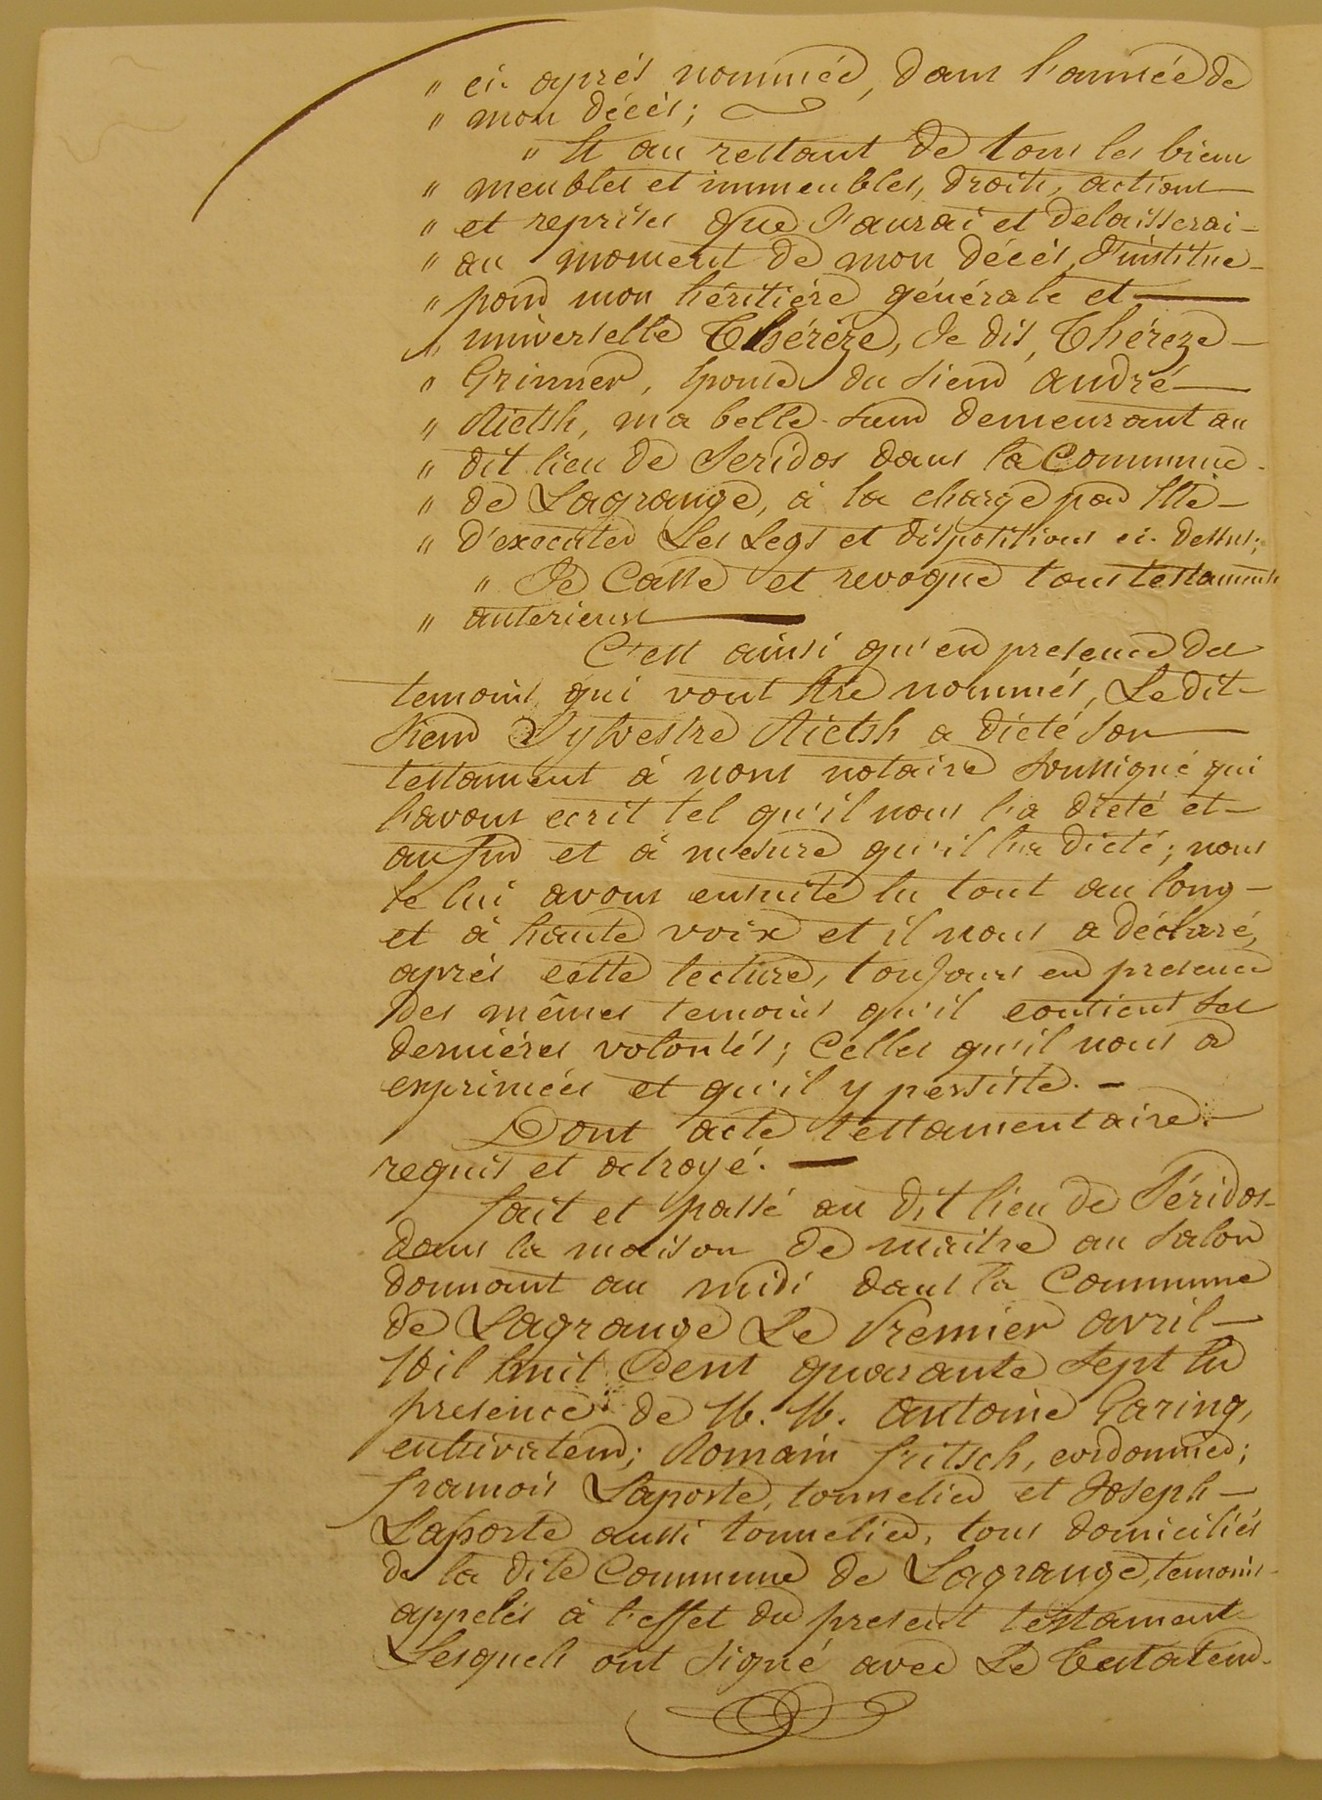 " ci-après nommée, dans l'année de
" mon décès;
" Et au restant de tous les biens
" meubles et immeubles, droits, actions
" et reprises que J'aurai et delaisserai -
" au moment de mon décès, J'institue -
" pour mon héritière générale et
" universelle Thérèze, Je dis, Thérèze -
" Grinner, épouse du sieur andré
" Rietsh, ma belle-sœur demeurant au
" dit lieu de Seridos dans la Commune -
" de Lagrange, à la charge par Elle -
" d'executer Les Legs et dispositions ci-dessus;
" Je Casse et revoque tous testaments
" anterieurs
C'est ainsi qu'en presence des
temoins, qui vont Etre nommés, Le dit -
Sieur Sylvestre Rietsh a dicté son
testament à nous notaire soussigné qui
l'avons ecrit tel qu'il nous l'a dicté et -
au fur et à mesure qu'il l'a dicté; nous
le lui avons ensuite lu tout au long -
et à haute voix et il nous a déclaré,
après cette lecture, toujours en presence
des mêmes temoins qu'il contient ses
dernières volontés; Celles qu'il nous a
exprimées et qu'il y persiste. -
Dont acte testamentaire -
requis et octroyé. -
fait et passé au dit lieu de Séridos -
dans la maison de maitre au salon
donnant au midi dans la Commune
de Lagrange Le Premier avril -
Mil huit Cent quarante sept En
presence de M. M. Antoine Garing,
cultivateur; Romain fritsch, cordonnier;
françois Laporte, tonnelier et Joseph -
Laporte aussi tonnelier, tous domiciliés
de la dite Commune de Lagrange, temoins -
appelés à l'effet du present testament
Lesquels ont signé avec Le testateur.